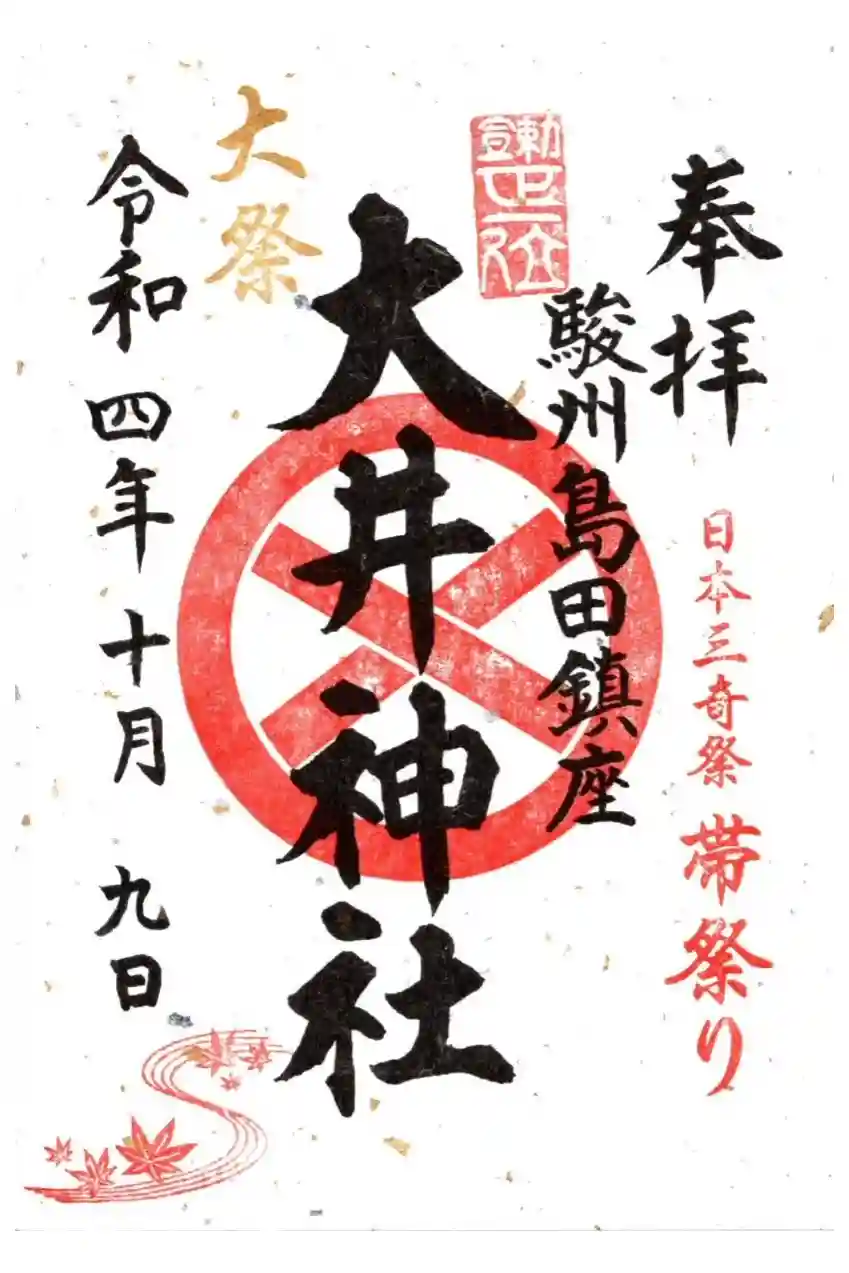 奉拝
日本三奇祭 帯祭り
駿州島田鎮座
大井神社
大祭
令和四年十月九日